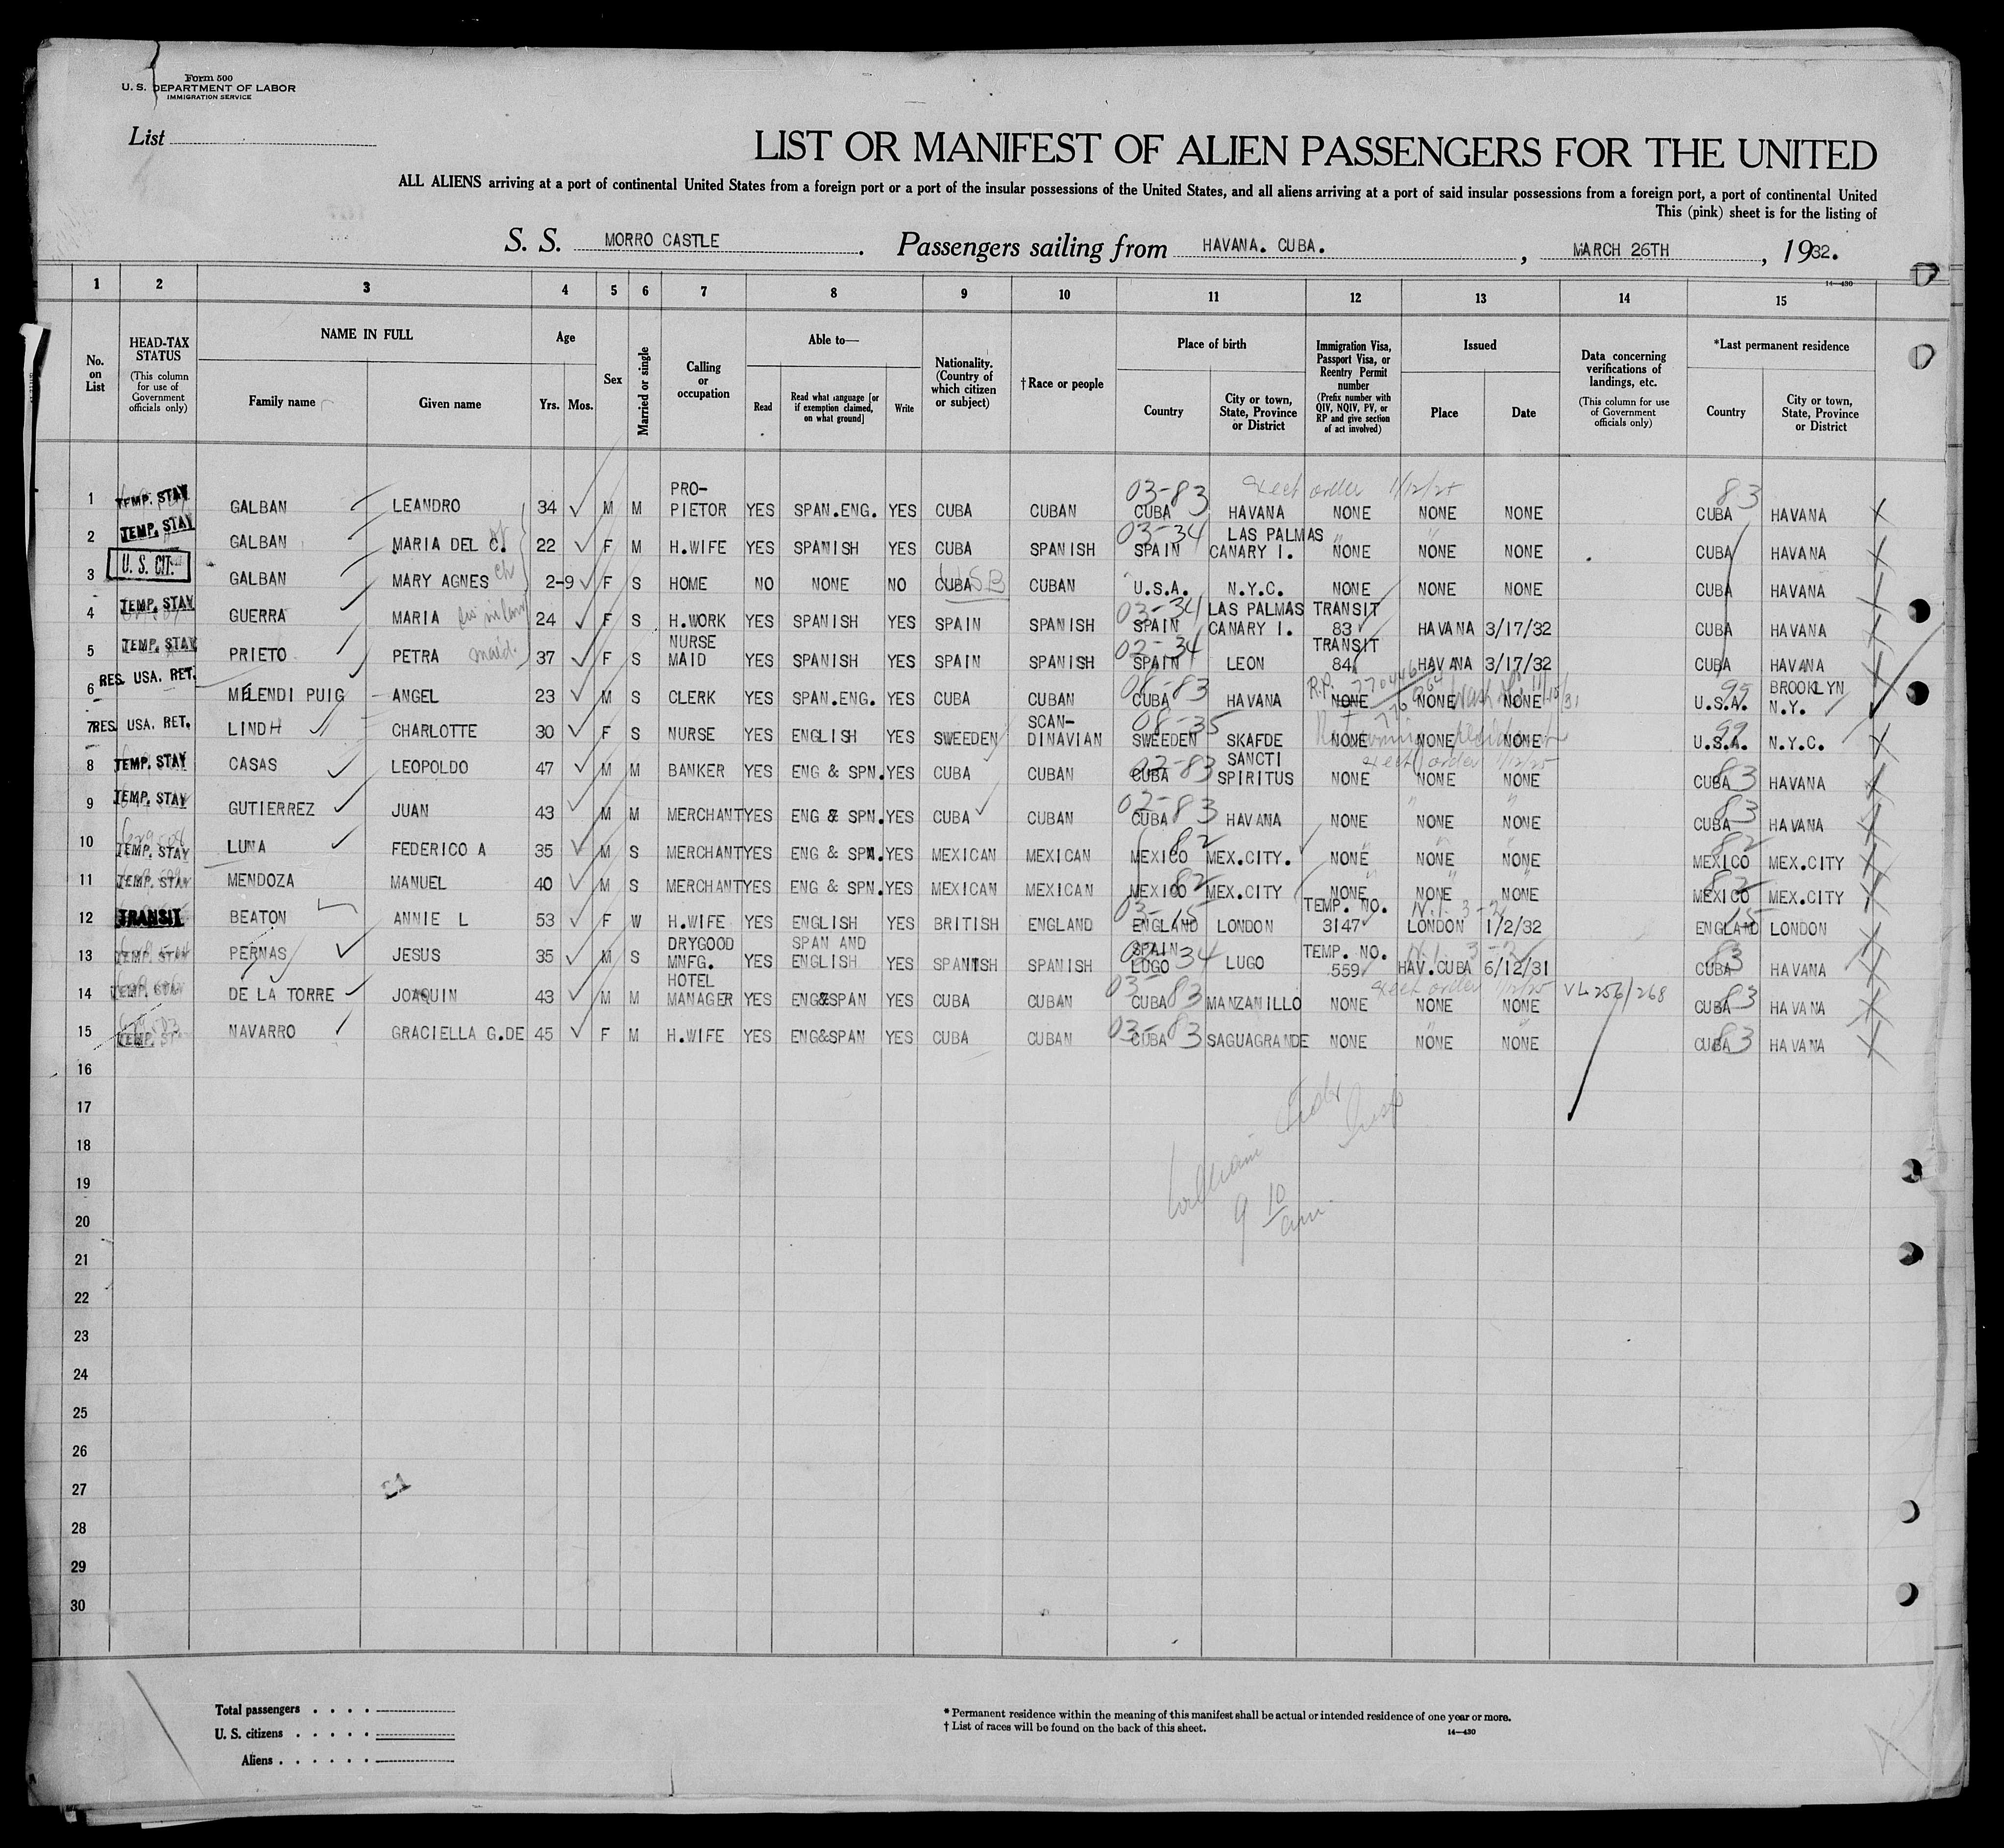 Form 500
U. S. DEPARTMENT OF LABOR
IMMIGRATION SERVICE
List
LIST OR MANIFEST OF ALIEN PASSENGERS FOR THE UNITED
ALL ALIENS arriving at a port of continental United States from a foreign port or a port of the insular possessions of the United States, and all aliens arriving at a port of said insular possessions from a foreign port, a port of continental United
This (pink) sheet is for the listing of
S. S. MORRO CASTLE . Passengers sailing from HAVANA. CUBA. , MARCH 26TH , 1932.
14—430
1 2 3 4 5 6 7 8 9 10 11 12 13 14 15
No. on List
HEAD-TAX STATUS (This column for use of Government officials only)
NAME IN FULL
Family name
Given name
Age
Yrs. Mos.
Sex
Married or single
Calling or occupation
Able to—
Read
Read what language [or if exemption claimed, on what ground]
Write
Nationality. (Country of which citizen or subject)
† Race or people
Place of birth
Country
City or town, State, Province or District
Immigration Visa, Passport Visa, or Reentry Permit number (Prefix number with QIV, NQIV, PV, or RP and give section of act involved)
Issued
Place
Date
Data concerning verifications of landings, etc. (This column for use of Government officials only)
*Last permanent residence
Country
City or town, State, Province or District
1 TEMP. STAY GALBAN LEANDRO 34 M M PRO-PIETOR YES SPAN.ENG. YES CUBA CUBAN 03-83 CUBA HAVANA order 1/12/25 NONE NONE NONE 83 CUBA HAVANA
2 TEMP. STAY GALBAN MARIA DEL C. 22 F M H.WIFE YES SPANISH YES CUBA SPANISH 03-34 SPAIN LAS PALMAS CANARY I. NONE NONE NONE CUBA HAVANA
3 U. S. CIT. GALBAN MARY AGNES ch 2-9 F S HOME NO NONE NO CUBA CUBAN U.S.A. N.Y.C. NONE NONE NONE CUBA HAVANA
4 TEMP. STAY GUERRA MARIA 24 F S H.WORK YES SPANISH YES SPAIN SPANISH 03-34 SPAIN LAS PALMAS CANARY I. TRANSIT 83 HAVANA 3/17/32 CUBA HAVANA
5 TEMP. STAY PRIETO PETRA maid. 37 F S NURSE MAID YES SPANISH YES SPAIN SPANISH 02-34 SPAIN LEON TRANSIT 84 HAVANA 3/17/32 CUBA HAVANA
6 RES. USA. RET. MELENDI PUIG ANGEL 23 M S CLERK YES SPAN.ENG. YES CUBA CUBAN 08-83 CUBA HAVANA R.P. NONE NONE NONE 99 U.S.A. BROOKLYN N.Y.
7 RES. USA. RET. LINDH CHARLOTTE 30 F S NURSE YES ENGLISH YES SWEEDEN SCAN-DINAVIAN 08-35 SWEEDEN SKAFDE NONE NONE NONE 99 U.S.A. N.Y.C.
8 TEMP. STAY CASAS LEOPOLDO 47 M M BANKER YES ENG & SPN. YES CUBA CUBAN 02-83 CUBA SANCTI SPIRITUS order 1/12/25 NONE NONE NONE 83 CUBA HAVANA
9 TEMP. STAY GUTIERREZ JUAN 43 M M MERCHANT YES ENG & SPN. YES CUBA CUBAN 02-83 CUBA HAVANA NONE NONE NONE 83 CUBA HAVANA
10 TEMP. STAY LUNA FEDERICO A 35 M S MERCHANT YES ENG & SPN. YES MEXICAN MEXICAN 82 MEXICO MEX.CITY. NONE NONE NONE 82 MEXICO MEX.CITY
11 TEMP. STAY MENDOZA MANUEL 40 M S MERCHANT YES ENG & SPN. YES MEXICAN MEXICAN 82 MEXICO MEX.CITY NONE NONE NONE 82 MEXICO MEX.CITY
12 TRANSIT BEATON ANNIE L 53 F W H.WIFE YES ENGLISH YES BRITISH ENGLAND 03-15 ENGLAND LONDON TEMP. NO. 3147 LONDON 1/2/32 15 ENGLAND LONDON
13 TEMP. STAY PERNAS JESUS 35 M S DRYGOOD MNFG. YES SPAN AND ENGLISH YES SPANISH SPANISH SPAIN LUGO 34 LUGO TEMP. NO. 559 HAV.CUBA 6/12/31 83 CUBA HAVANA
14 TEMP. STAY DE LA TORRE JOAQUIN 43 M M HOTEL MANAGER YES ENG&SPAN YES CUBA CUBAN 03-83 CUBA MANZANILLO order 1/12/25 NONE NONE NONE VL 256/268 83 CUBA HAVANA
15 TEMP. STAY NAVARRO GRACIELLA G.DE 45 F M H.WIFE YES ENG&SPAN YES CUBA CUBAN 03-83 CUBA SAGUAGRANDE NONE NONE NONE 83 CUBA HAVANA
16
17
18
19
William
20
9 10 am.
21
22
23
24
25
26
27
28
29
30
Total passengers
U. S. citizens
Aliens
* Permanent residence within the meaning of this manifest shall be actual or intended residence of one year or more.
† List of races will be found on the back of this sheet.
14—430